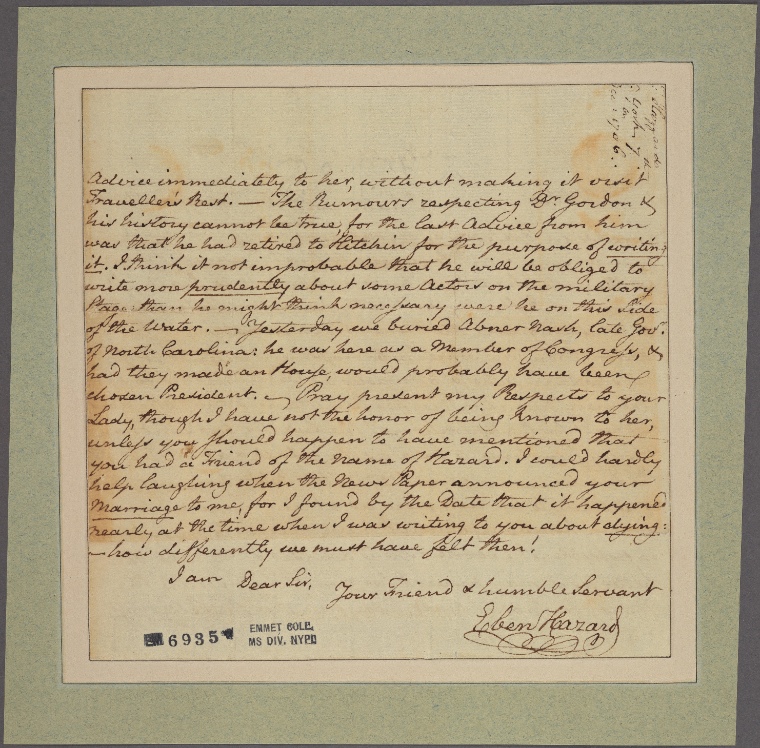 Advice immediately to her, without making it visit
Traveller's Rest. — The Rumours respecting Dr. Gordon &
his history cannot be true, for the last Advice from him
was that he had retired to Hitchin for the purpose of writing
it. I think it not improbable that he will be obliged to
write more prudently about some Actors on the military
Stage than he might think necessary were he on this Side
of the Water. — Yesterday we buried Abner Nash, late Govr.
of North Carolina: he was here as a Member of Congress, &
had they made an House, would probably have been
chosen President. — Pray present my Respects to your
Lady, though I have not the honor of being known to her,
unless you should happen to have mentioned that
you had a Friend of the name of Hazard. I could hardly
help laughing when the News Paper announced your
Marriage to me, for I found by the Date that it happened
nearly at the time when I was writing to you about dying:
— how differently we must have felt then!
I am Dear Sir, Your Friend & humble Servant
Eben Hazard
6935
EMMET COLL.
MS DIV. NYPL